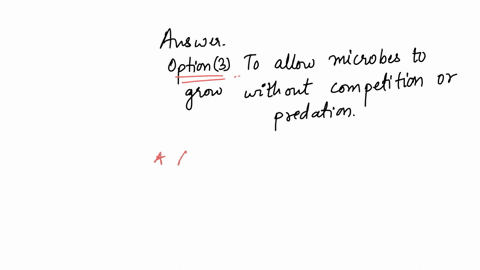 Answer.
Option (3) To allow microbes to
grow without competition or
predation.